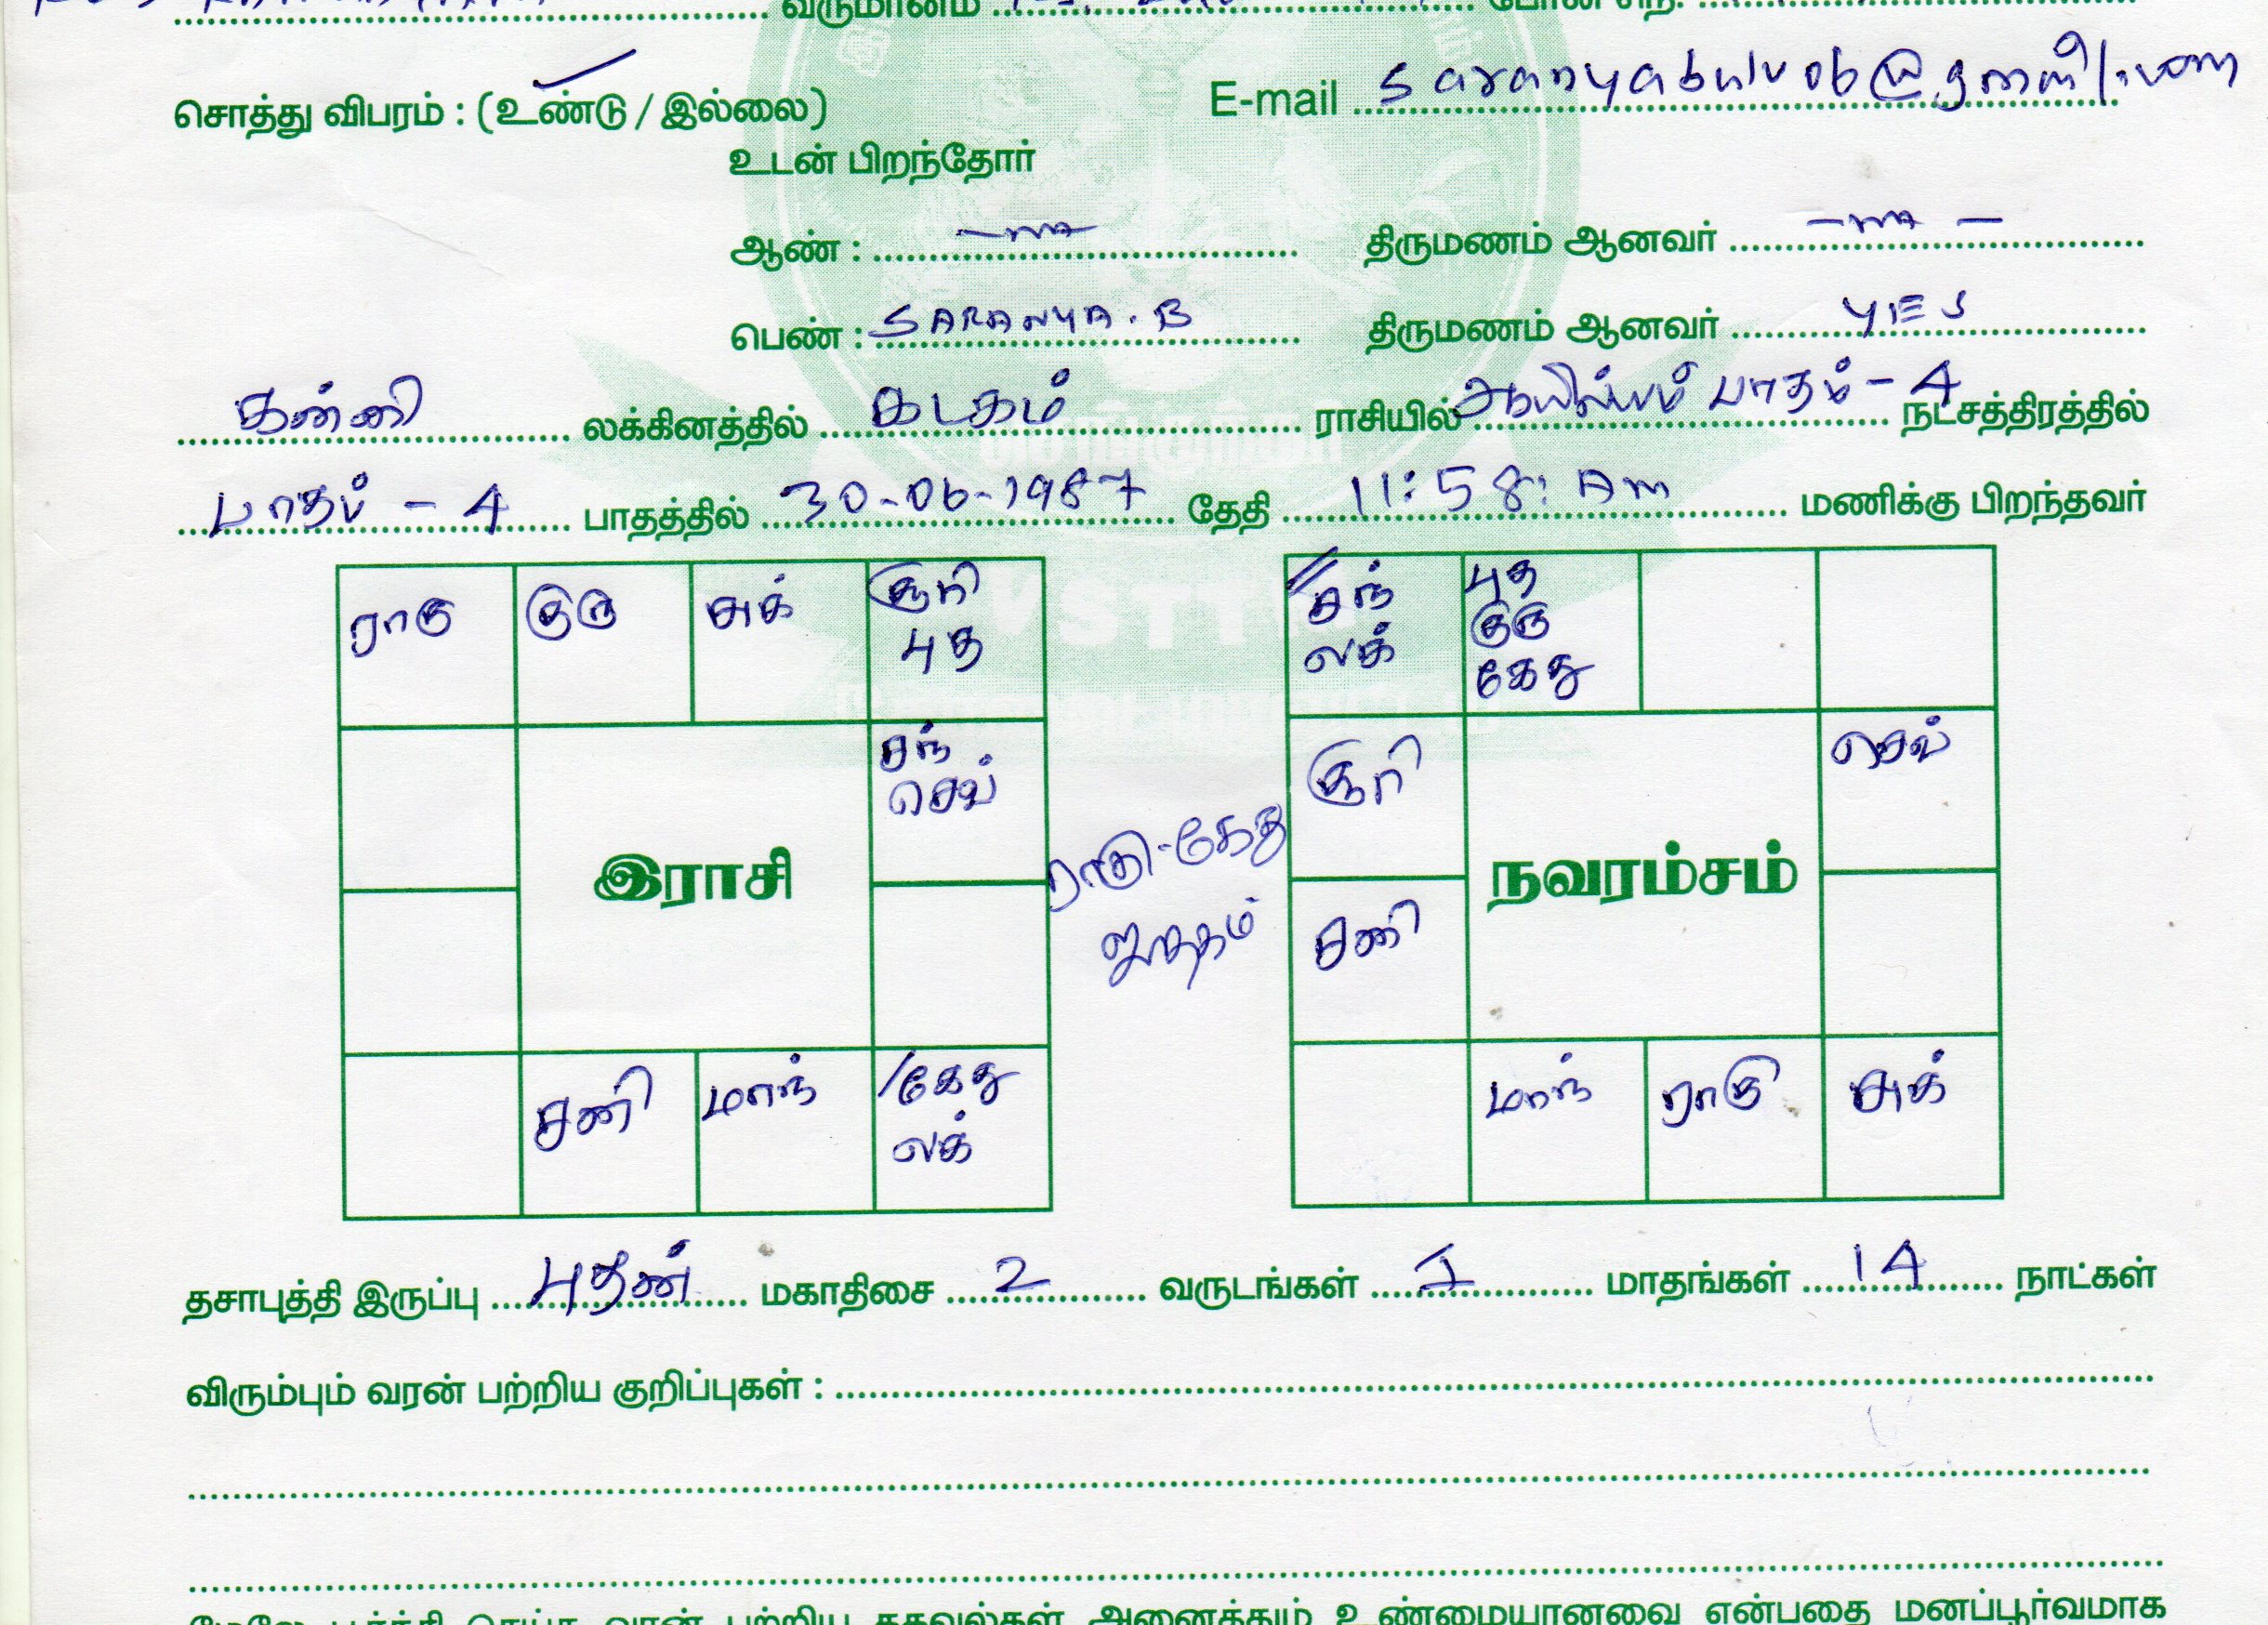 வருமானம்
சொத்து விபரம் : (உண்டு / இல்லை) E-mail
உடன் பிறந்தோர்
ஆண் : திருமணம் ஆனவர்
பெண் : SARANYA. B திருமணம் ஆனவர் YES
கன்னி லக்கினத்தில் கடகம் ராசியில் ஆயில்யம் பாதம் - 4 நட்சத்திரத்தில்
பாதம் - 4 பாதத்தில் 30-06-1987 தேதி 11:58: Am மணிக்கு பிறந்தவர்
ராகு குரு சுக் சூரி புத
சந் செவ்
இராசி
சனி மாந் கேது லக்
ராகு-கேது
சந் லக் புத குரு கேது
சூரி செவ்
நவரம்சம்
சனி
மாந் ராகு சுக்
தசாபுத்தி இருப்பு புதன் மகாதிசை 2 வருடங்கள் 1 மாதங்கள் 14 நாட்கள்
விரும்பும் வரன் பற்றிய குறிப்புகள் :
மேலே பூர்த்தி செய்த வரன் பற்றிய தகவல்கள் அனைத்தும் உண்மையானவை என்பதை மனப்பூர்வமாக